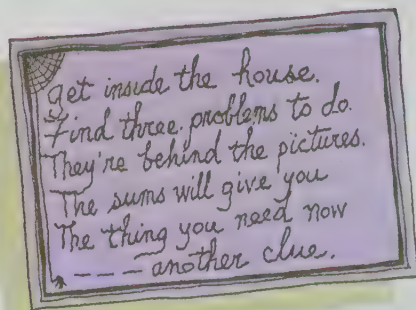 get inside the house.
Find three problems to do.
They're behind the pictures.
The sums will give you
The thing you need now
--- another clue.